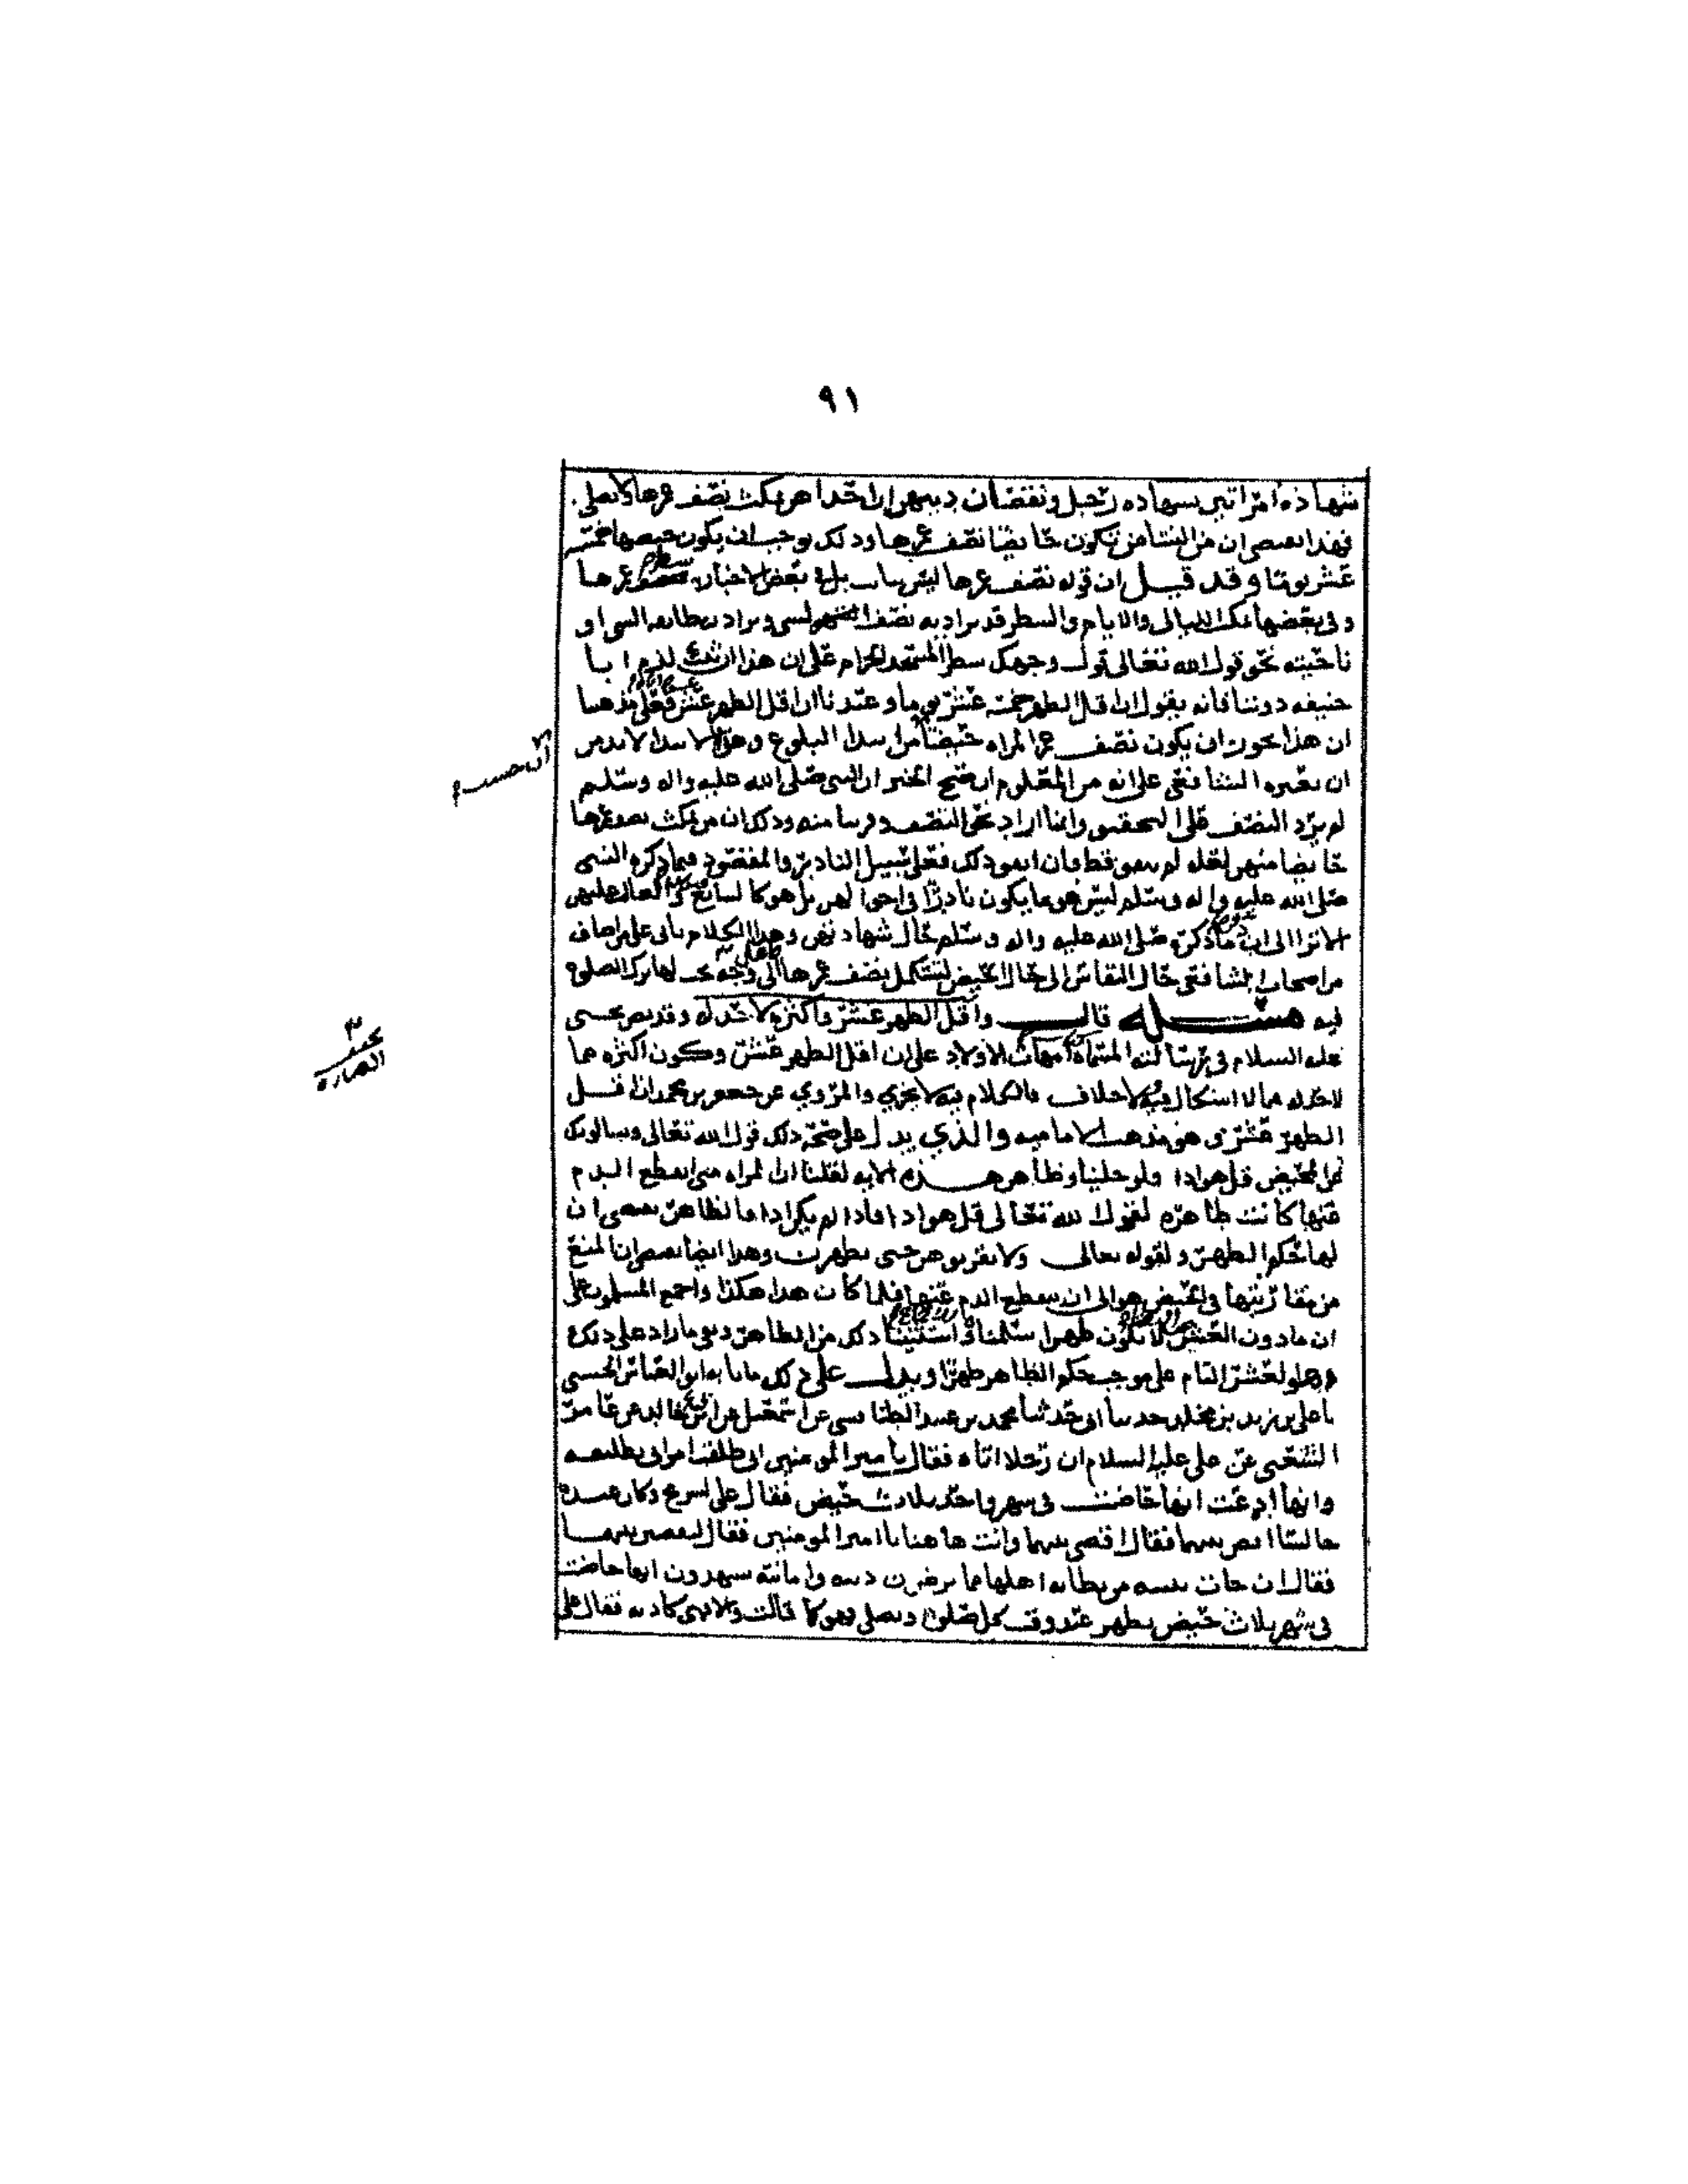 ٩١
شهاذه امراتين بشهاده رجل ونقصان دينهن ان احداهن تمكث نصف عمرها لا تصلي
فهذا يقتضي ان من النسا من تكون حايضا نصف عمرها وذلك يوجب ان يكون حيضها خمسه
عشر يوما وقد قيل ان قوله نصف عمرها ليس بثابت بل في بعض الاخبار شطر عمرها
وفي بعضها تمكث الليالي والايام والشطر قد يراد به نصف الشي ويراد به طايفه الشي او
ناحيته نحو قول الله تعالى فول وجهك شطر المسجد الحرام على ان هذا ان ثبت لزم ابا
حنيفه دوننا فانه يقول ان اقل الطهر خمسه عشر يوما وعندنا ان اقل الطهر عشر فعلى مذهبنا
ان هذا يجوز ان يكون نصف عمر المراه حيضا من ابتدا البلوغ وهذا الابتدا لابد من
ان يعتبره الشافعي على انه من المعلوم ان صح الخبر ان النبي صلى الله عليه واله وسلم
لم يرد النصف على التحقيق وانما اراد نحو النصف وقريبا منه وذلك ان من تمكث نصف عمرها
حايضا منهن لعله لم يتفق قط وان اتفق ذلك فعلى سبيل النادر والمقصود فيما ذكره النبي
صلى الله عليه واله وسلم ليس هو ما يكون نادرا في احوالهن بل هو كالشايع الغالب عليهن
الا ترا الى ان ما ذكره صلى الله عليه واله وسلم حال شهادتهن وهذا الكلام ياتي على من اضاف
من اصحاب الشافعي حال النفاس الى حال الحيض لتستكمل نصف عمرها الى وجه يجب لها ترك الصلوه
فيه مسئله قال واقل الطهر عشر واكثره لا حد له وقد نص يحيى
عليه السلام في رسالته المسماه امهات الاولاد على ان اقل الطهر عشر وكون اكثره مما
لا حد له مما لا اشكال فيه ولا خلاف فالكلام فيه لا يجزي والمروي عن جعفر بن محمد ان اقل
الطهر عشر وهو مذهب الاماميه والذي يدل على صحه ذلك قول الله تعالى ويسالونك
عن المحيض قل هو اذا ولو خلينا وظاهر هذه الايه لقلنا ان المراه متى انقطع الدم
عنها كانت طاهره لقول الله تعالى قل هو اذا فاذا لم يكن اذا فالظاهر يقتضي ان
لها حكم الطهر ولقوله تعالى ولا تقربوهن حتى يطهرن وهذا ايضا يقتضي ان المنع
من مقاربتها في الحيض هو الى ان ينقطع الدم عنها فلما كان هذا هكذا واجمع المسلمون على
ان ما دون العشر لا يكون طهرا سلمنا واستثنينا ذلك من الظاهر وبقي ما زاد على ذلك
وهو العشر التام على موجب حكم الظاهر طهرا ويدل على ذلك ما انا به ابو العباس الحسني
نا علي بن يزيد بن مخلد حدثنا ابي حدثنا محمد بن عبيد الطنافسي عن اسمعيل بن ابي خالد عن عامر
الشعبي عن علي عليه السلام ان رجلا اتاه فقال يا امير المومنين اني طلقت امراتي تطليقه
وانها ادعت انها حاضت في شهر واحد ثلاث حيض فقال علي لشريح وكان عنده
جالسا اقض بينهما فقال اقضي بينهما وانت هاهنا يا امير المومنين فقال لتقضين بينهما
فقال ان جات ببينه من بطانه اهلها ممن يرضون دينه وامانته يشهدون انها حاضت
في شهر ثلاث حيض تطهر عند وقت كل صلوه وتصلي فهو كما قالت والا فهي كاذبه فقال علي